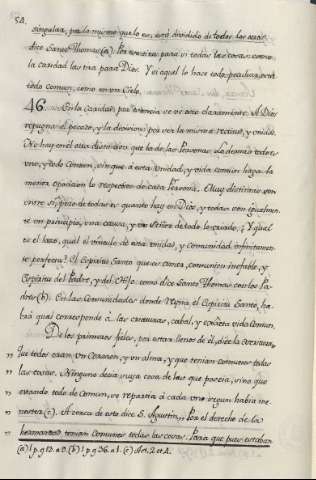 52.
singular, por lo mismo que lo es, está dividido de todos los otros
dice Santo Thomas (a). Por contra para si todas las cosas: como
la caridad las tira para Dios. Y si aquel lo hace todo peculiar, esta
todo comun, como en un Cielo.
46. En la caridad por esencia se ve esto claramente. A Dios
repugna el pecado, y la division; por ser la misma rectitud, y unidad.
No hay en el otra distincion que la de las Personas. Lo demas todo es
uno, y todo comun, sin que á esta unidad, y vida comun haga la
menor oposicion lo respectivo de cada Persona. Muy distintas son
entre si; pero de todas es quanto hay en Dios, y todas son igualmen-
te un principio, una causa, y un Señor de todo lo criado. Y qual
es el lazo, qual el vinculo de esta unidad, y comunidad infinitamen-
te perfecta? El Espiritu Santo que es amor, comunion inefable, y
Espiritu del Padre, y del Hijo: como dice Santo Thomas con los Pa-
dres (b). En las Comunidades donde reyna el Espiritu Santo, ha-
brá qual corresponde á las criaturas, cabal, y entera vida comun.
De los primeros fieles, por estar llenos de él, dice la Escritura,
que todos eran un Corazon, y un alma, y que tenian comunes todas
las cosas. Ninguno decia suya cosa de las que poseia, sino que
estando todo de comun, se repartia á cada uno segun habia me-
nester (c). Acerca de esto dice S. Agustin, Por el derecho de la
hermandad tenian comunes todas las cosas. Para que pues estaban
(a) 1. p. q. 13. a. 9. (b) 1. p. q. 36. a. 1. (c) Act. 2. et 4.